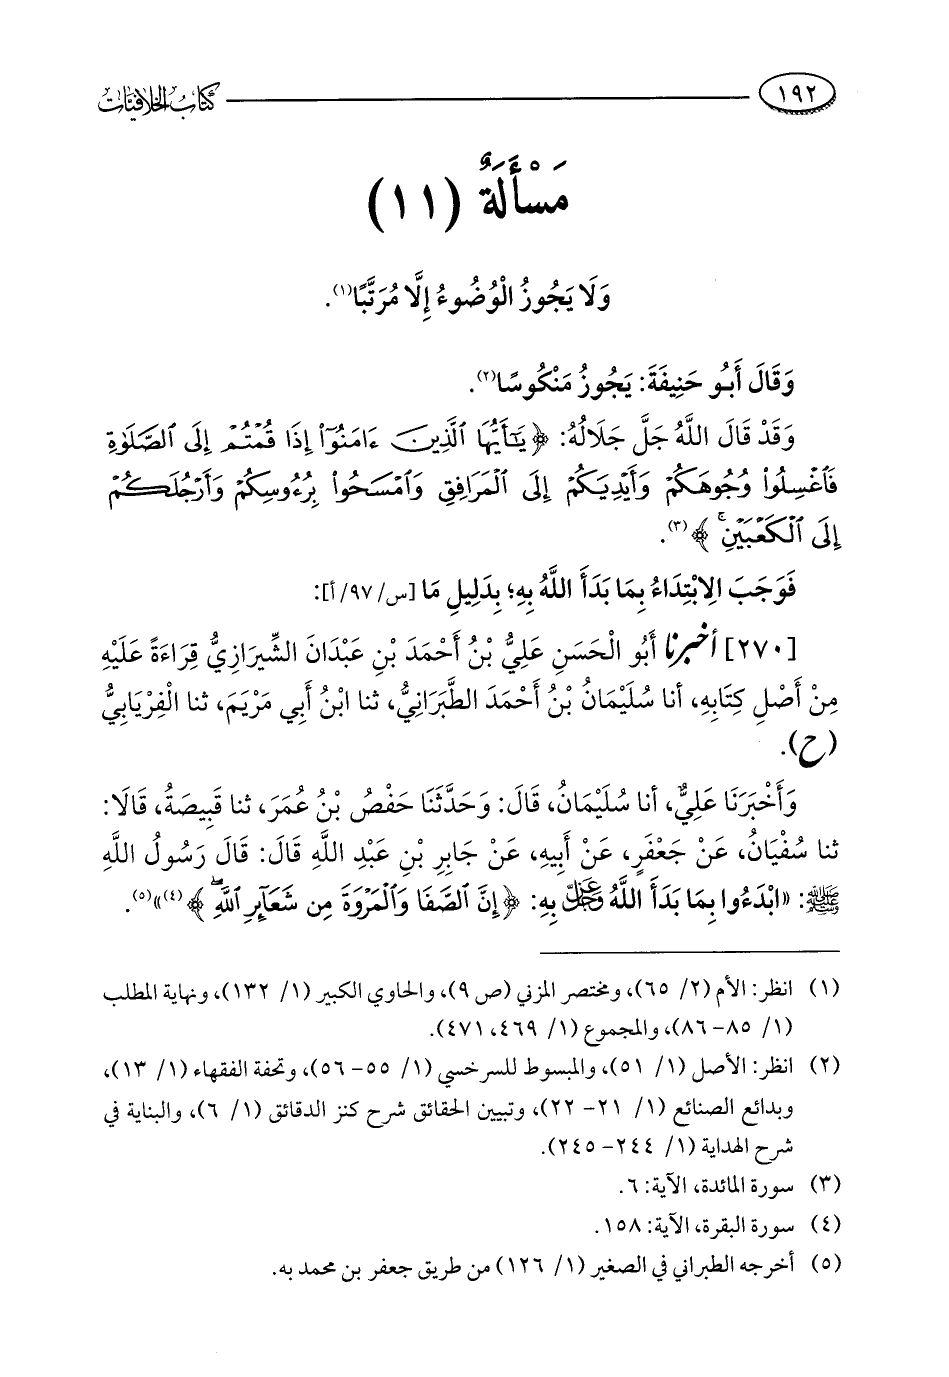 ١٩٢ كتاب الخلافيات
مَسْأَلَةٌ (١١)
وَلَا يَجُوزُ الْوُضُوءُ إِلَّا مُرَتَّبًا(١).
وَقَالَ أَبُو حَنِيفَةَ: يَجُوزُ مَنْكُوسًا(٢).
وَقَدْ قَالَ اللَّهُ جَلَّ جَلَالُهُ: ﴿يَٰٓأَيُّهَا ٱلَّذِينَ ءَامَنُوٓاْ إِذَا قُمۡتُمۡ إِلَى ٱلصَّلَوٰةِ
فَٱغۡسِلُواْ وُجُوهَكُمۡ وَأَيۡدِيَكُمۡ إِلَى ٱلۡمَرَافِقِ وَٱمۡسَحُواْ بِرُءُوسِكُمۡ وَأَرۡجُلَكُمۡ
إِلَى ٱلۡكَعۡبَيۡنِۚ﴾(٣).
فَوَجَبَ الِابْتِدَاءُ بِمَا بَدَأَ اللَّهُ بِهِ؛ بِدَلِيلِ مَا [س/ ٩٧/ أ]:
[٢٧٠] أخبرنا أَبُو الْحَسَنِ عَلِيُّ بْنُ أَحْمَدَ بْنِ عَبْدَانَ الشِّيرَازِيُّ قِرَاءَةً عَلَيْهِ
مِنْ أَصْلِ كِتَابِهِ، أنا سُلَيْمَانُ بْنُ أَحْمَدَ الطَّبَرَانِيُّ، ثنا ابْنُ أَبِي مَرْيَمَ، ثنا الْفِرْيَابِيُّ
(ح).
وَأَخْبَرَنَا عَلِيٌّ، أنا سُلَيْمَانُ، قَالَ: وَحَدَّثَنَا حَفْصُ بْنُ عُمَرَ، ثنا قَبِيصَةُ، قَالَا:
ثنا سُفْيَانُ، عَنْ جَعْفَرٍ، عَنْ أَبِيهِ، عَنْ جَابِرِ بْنِ عَبْدِ اللَّهِ قَالَ: قَالَ رَسُولُ اللَّهِ
ﷺ: «ابْدَءُوا بِمَا بَدَأَ اللَّهُ عَزَّ وَجَلَّ بِهِ: ﴿إِنَّ ٱلصَّفَا وَٱلۡمَرۡوَةَ مِن شَعَآئِرِ ٱللَّهِۖ﴾(٤)»(٥).
(١) انظر: الأم (٢/ ٦٥)، ومختصر المزني (ص ٩)، والحاوي الكبير (١/ ١٣٢)، ونهاية المطلب
(١/ ٨٥- ٨٦)، والمجموع (١/ ٤٦٩، ٤٧١).
(٢) انظر: الأصل (١/ ٥١)، والمبسوط للسرخسي (١/ ٥٥- ٥٦)، وتحفة الفقهاء (١/ ١٣)،
وبدائع الصنائع (١/ ٢١- ٢٢)، وتبيين الحقائق شرح كنز الدقائق (١/ ٦)، والبناية في
شرح الهداية (١/ ٢٤٤- ٢٤٥).
(٣) سورة المائدة، الآية: ٦.
(٤) سورة البقرة، الآية: ١٥٨.
(٥) أخرجه الطبراني في الصغير (١/ ١٢٦) من طريق جعفر بن محمد به.